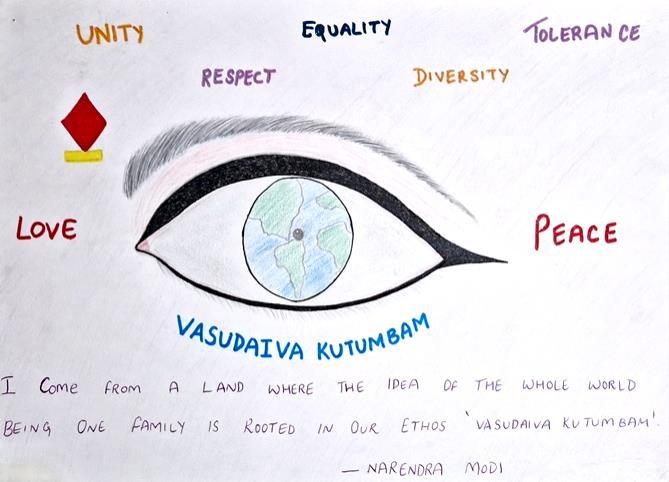 UNITY EQUALITY TOLERANCE
RESPECT DIVERSITY
LOVE PEACE
VASUDAIVA KUTUMBAM
I COME FROM A LAND WHERE THE IDEA OF THE WHOLE WORLD
BEING ONE FAMILY IS ROOTED IN OUR ETHOS 'VASUDAIVA KUTUMBAM'.
— NARENDRA MODI